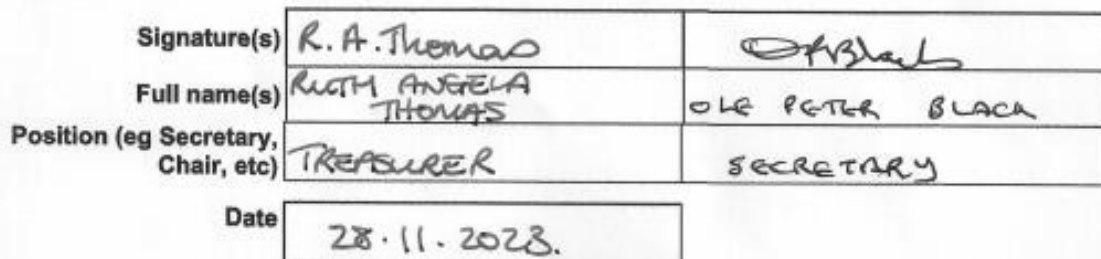 Signature(s) R. A. Thomas OPBlack
Full name(s) RUTH ANGELA THOMAS OLE PETER BLACK
Position (eg Secretary, Chair, etc) TREASURER SECRETARY
Date 28.11.2023.